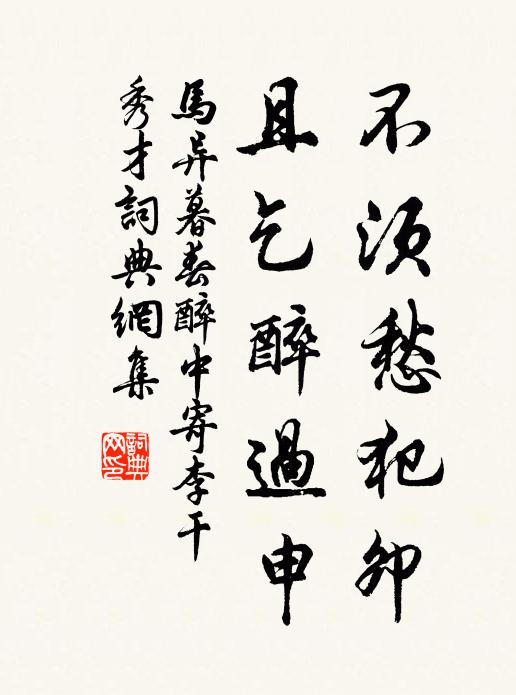 不須愁犯卯
且乞醉過申
馬异暮春醉中寄李干
秀才詞典網集
詞典网印